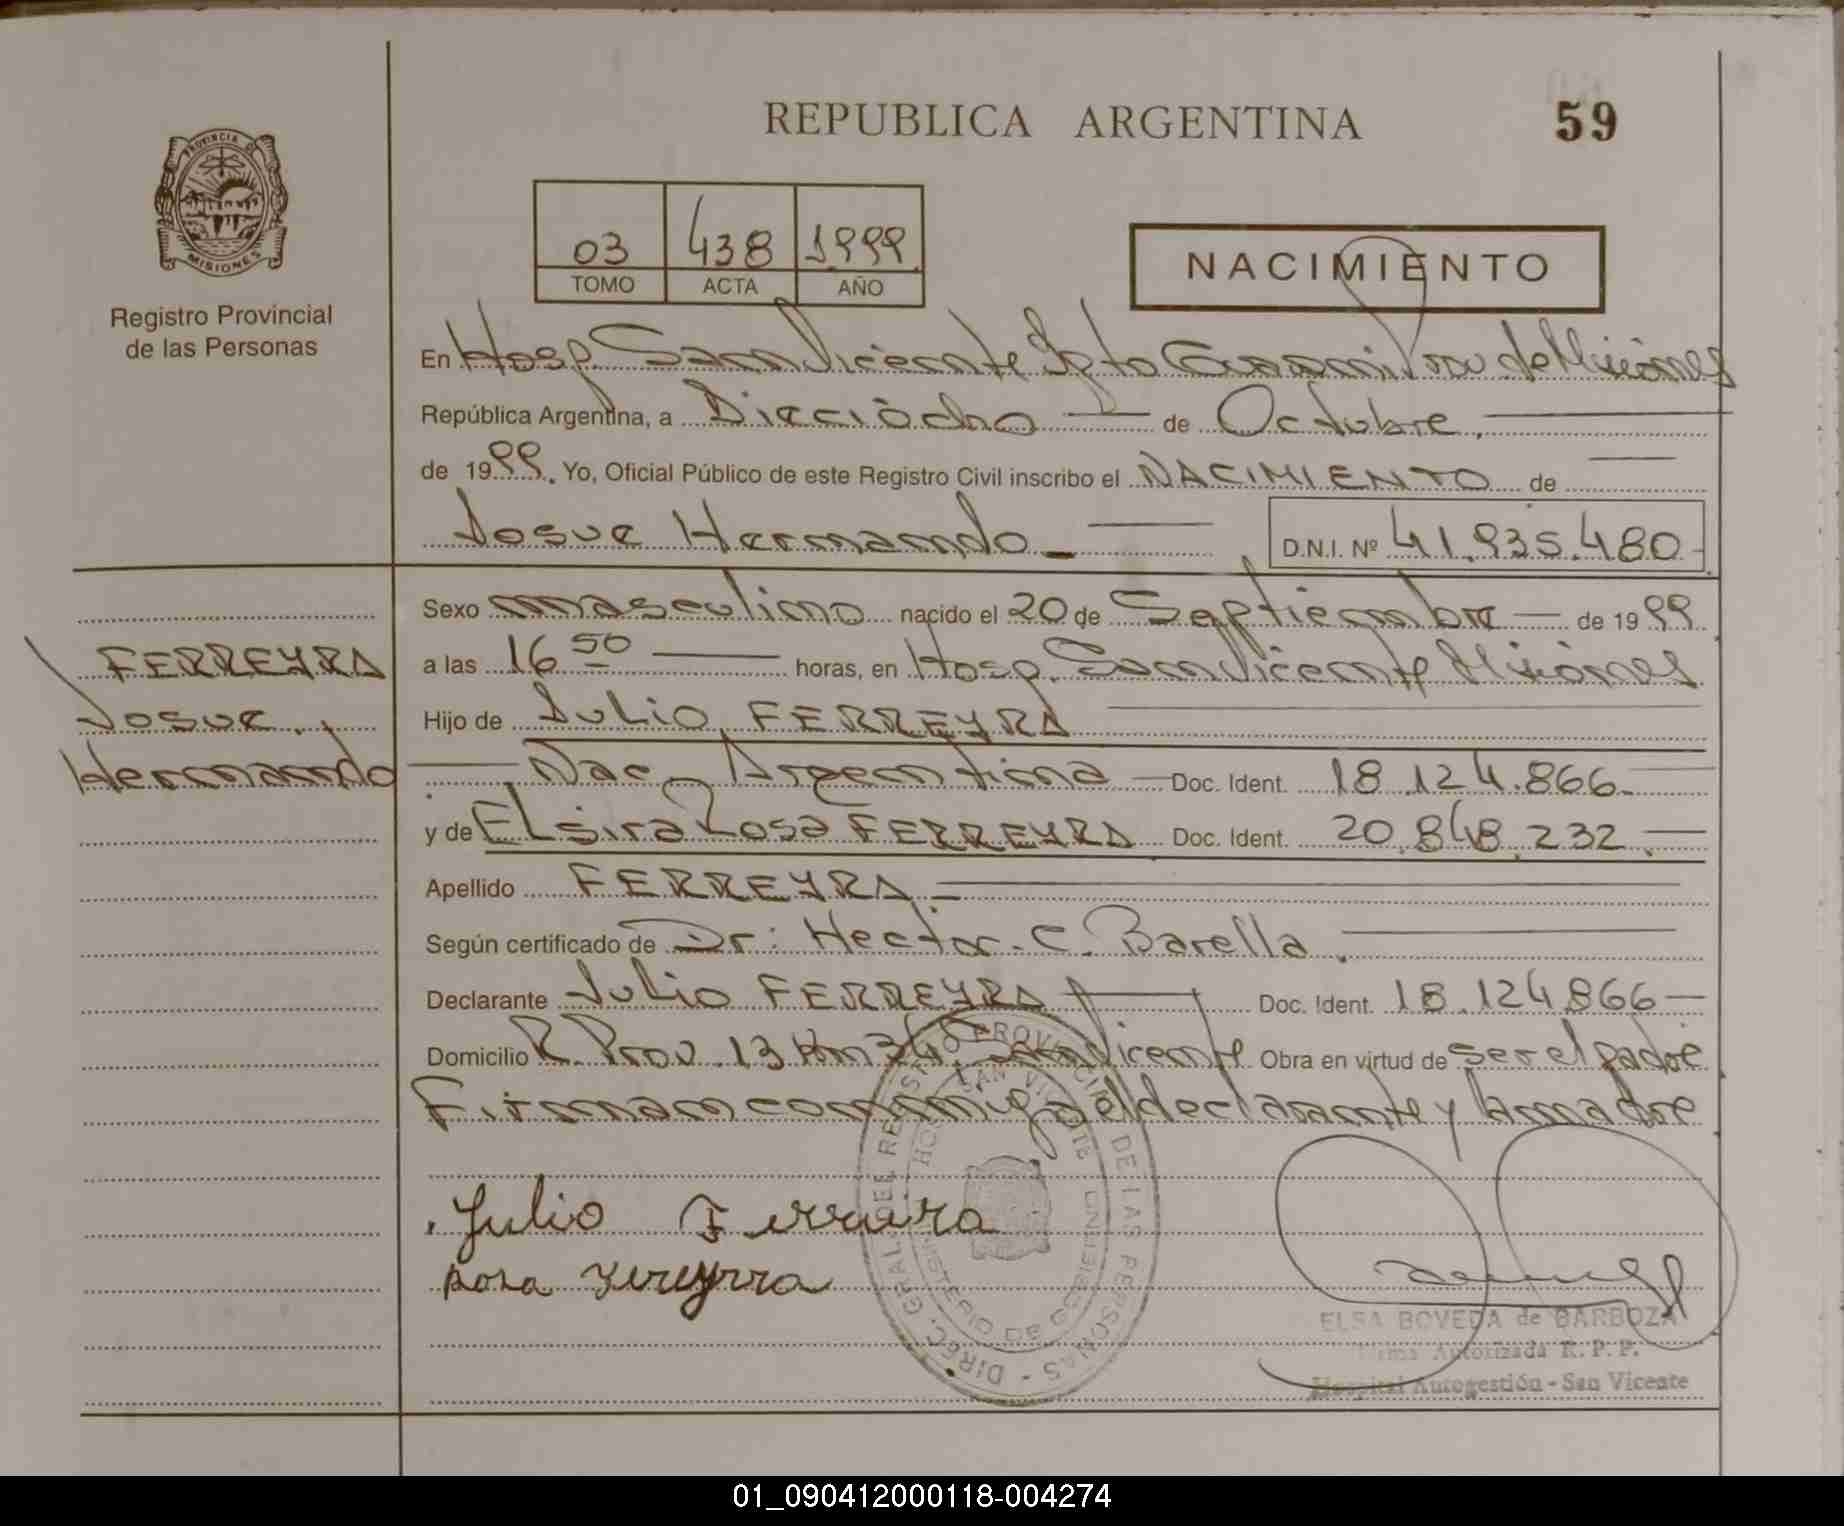 REPUBLICA ARGENTINA
59
PROVINCIA DE
MISIONES
Registro Provincial
de las Personas
03 438 1999
TOMO ACTA AÑO
NACIMIENTO
En Hosp. San Vicente Dpto Guaraní Prov de Misiones
República Argentina, a Dieciocho de Octubre.
de 1999. Yo, Oficial Público de este Registro Civil inscribo el NACIMIENTO de
Josue Hernando D.N.I. Nº 41.935.480
Sexo masculino nacido el 20 de Septiembre de 1999
FERREYRA
Josue
Hernando
a las 16 50 horas, en Hosp. San Vicente Misiones
Hijo de Julio FERREYRA
Nac. Argentina Doc. Ident. 18.124.866
y de Elsira Rosa FERREYRA Doc. Ident. 20.848.232.
Apellido FERREYRA
Según certificado de Dr: Hector. C. Barella.
Declarante Julio FERREYRA Doc. Ident. 18.124.866
Domicilio R. Prov. 13 Km San Vicente Obra en virtud de ser el padre
Firman conmigo el declarante y la madre
Julio Ferreira
Rosa
DIREC. GRAL. DEL REGISTRO PROVINCIAL DE LAS PERSONAS
HOSP. SAN VICENTE
MINISTERIO DE GOBIERNO
ELSA BOVEDA de BARBOZA
Firma Autorizada R. P. P.
Hospital Autogestión - San Vicente
01_090412000118-004274